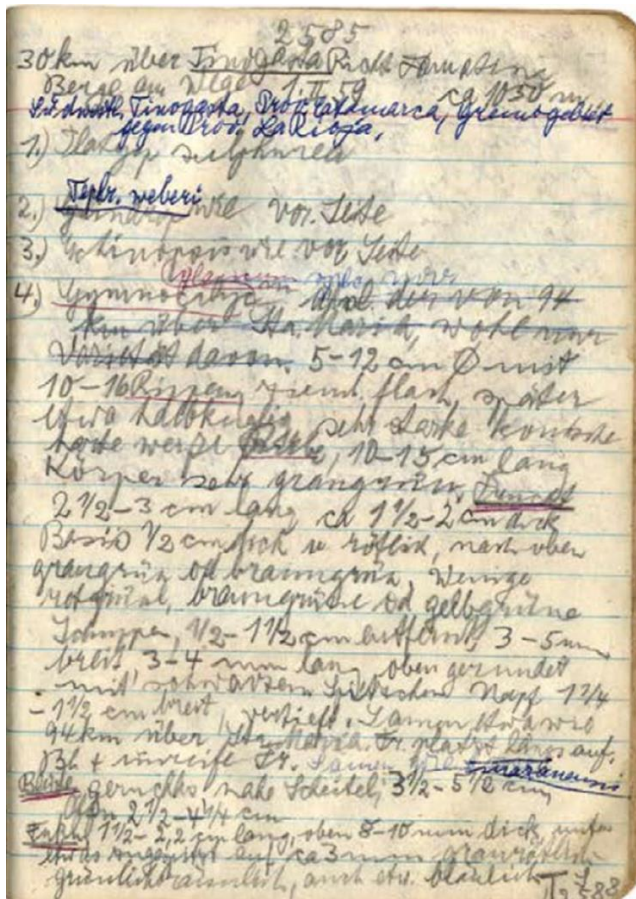 2585
30 km über Tinogasta Richt. Famatina
Berge am Wege 1. II 59 ca 1050 m
Südwestl. Tinogasta, Prov. Catamarca, Grenzgebiet
gegen Prov. La Rioja,
1.)
Tephr. weberi
2.) wie vor. Seite
3.) Echinopsis wie vor. Seite
spec. nov.
4.) Gymnocalyc. der von 94
km über Sta. Maria, wohl nur
Varietät davon. 5–12 cm Ø mit
10–16 Rippen, ziemt. flach, später
etwa halbkuglig, sehr starke konische
harte weiße, 10–15 cm lang
Körper sehr graugrün. Frucht
2 1/2–3 cm lang, ca 1 1/2–2 cm dick
Basis 1/2 cm dick u. rötlich, nach oben
graugrün od. braungrün, wenige
rotgrüne, braungrüne od. gelbgrüne
Schuppen, 1/2–1 1/2 cm entfernt, 3–5 mm
breit, 3–4 mm lang, oben gerundet
mit schwarzem Spitzchen. Napf 1 1/4
– 1 1/2 cm breit, vertieft. Samen etwa wie
94 km über Sta. Maria. Fr. platzt längs auf.
Bl. + unreife Fr. Samen wie mazanensis
Blüte geruchlos nahe Scheitel, 3 1/2–5 1/2 cm,
Öffn. 2 1/2–4 1/4 cm
1 1/2–2,2 cm lang, oben 8–10 mm dick, unten
etwas auf ca 3 mm
auch etw. bläulich